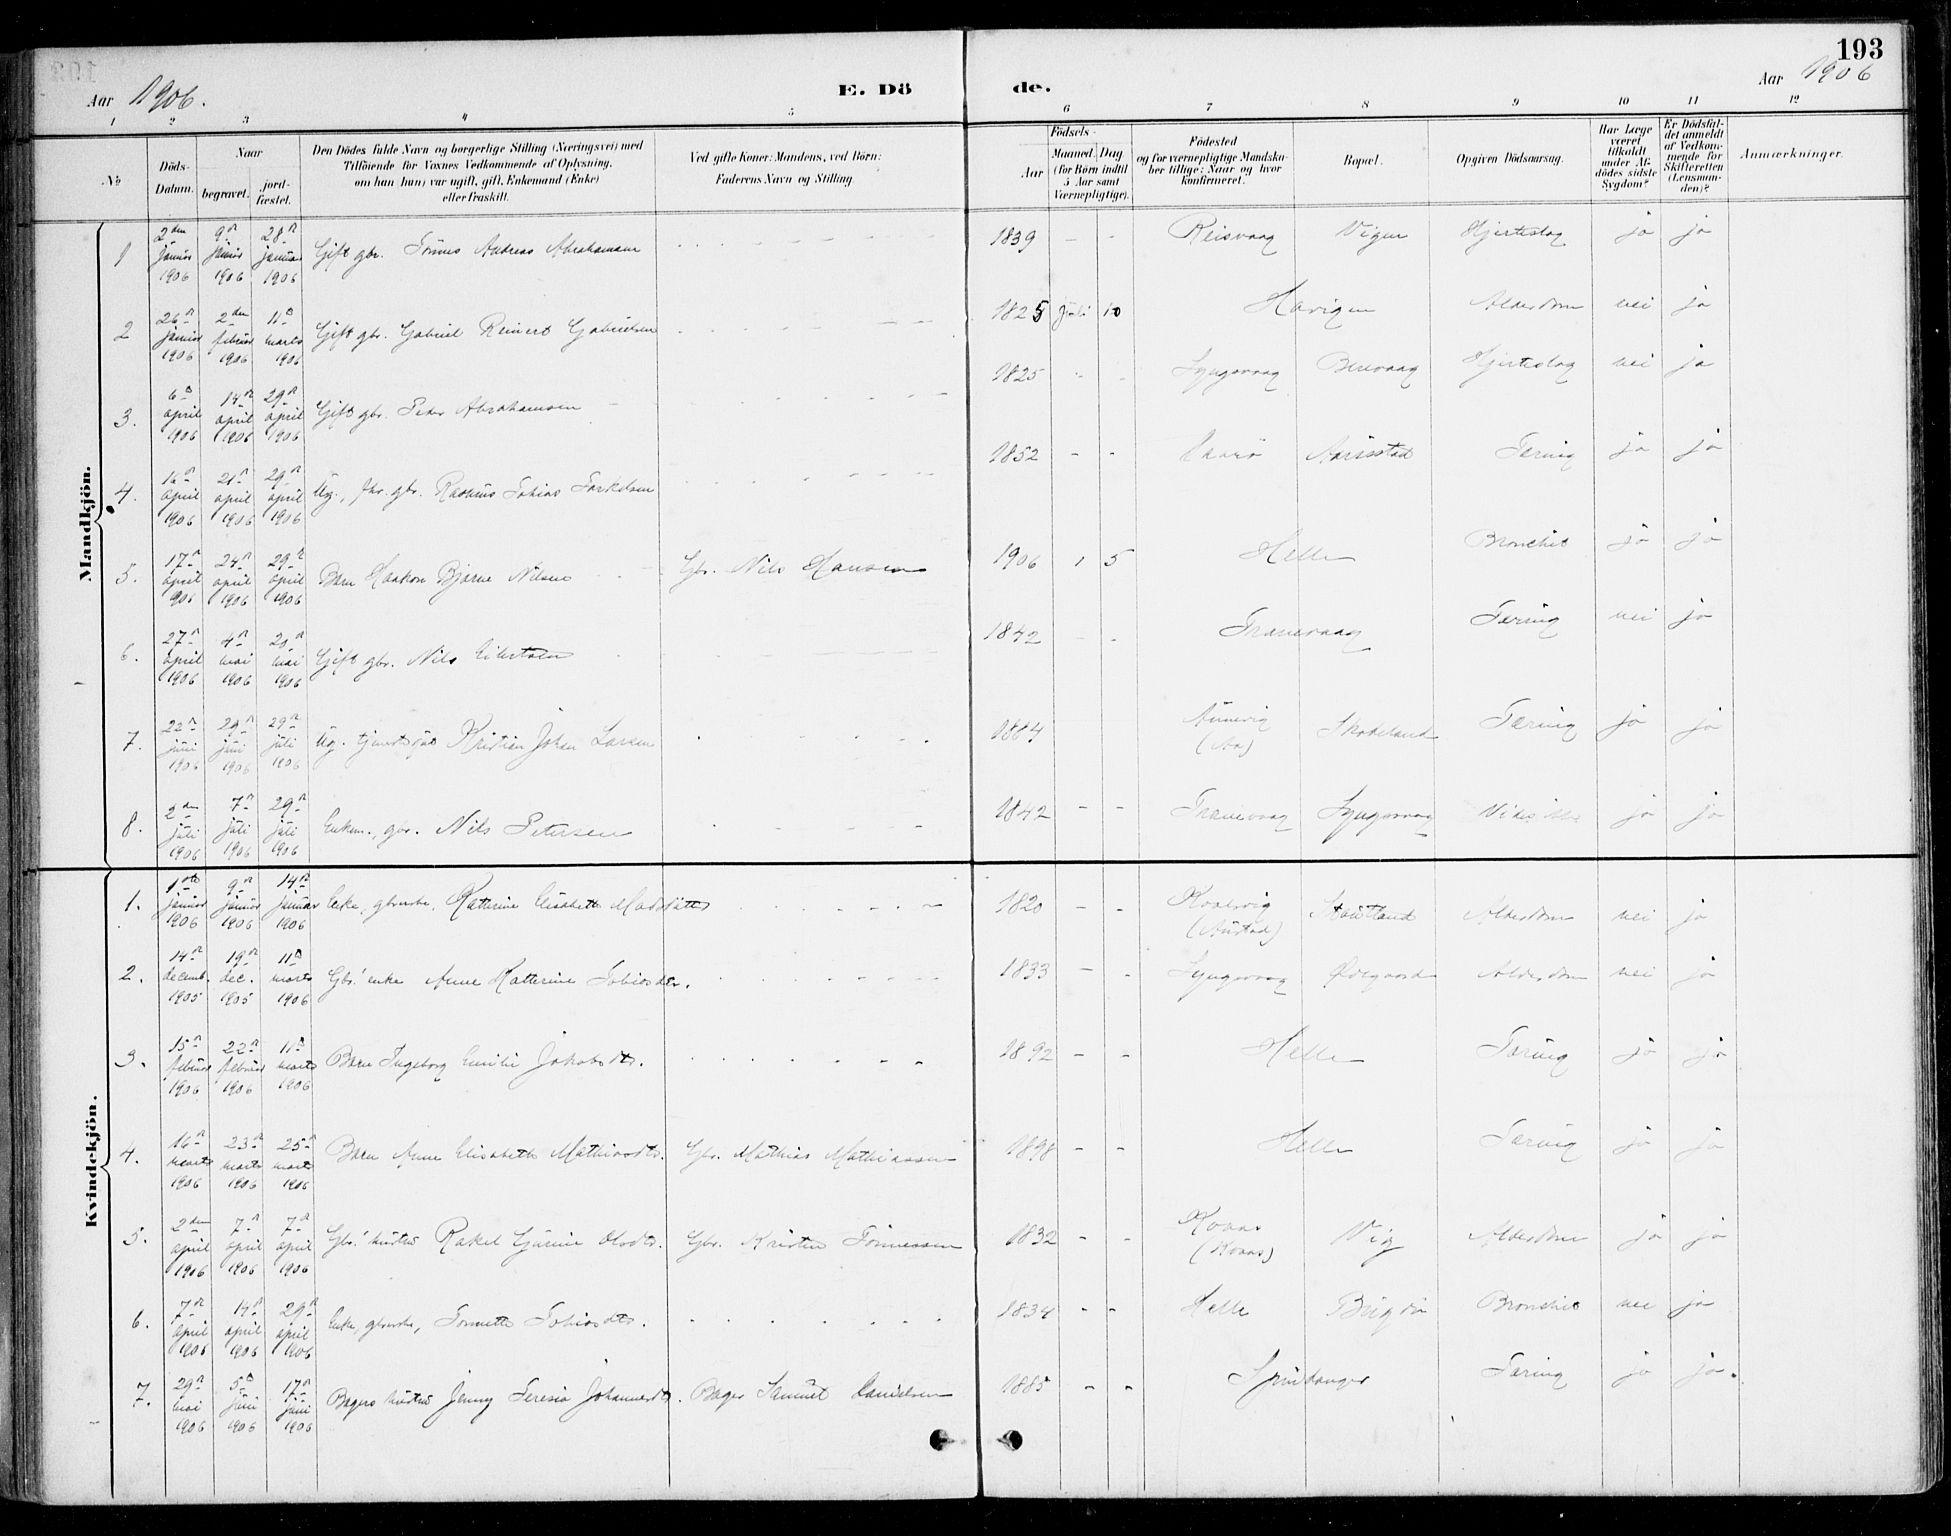 193
Aar 1906. E. Döde. Aar 1906
1 2 3 4 5 6 7 8 9 10 11 12
No
Döds-Datum.
Naar begravet. jord-fæstet.
Den Dödes fulde Navn og borgerlige Stilling (Næringsvei) med
Tilføiende for Voxnes Vedkommende af Oplysning,
om han (hun) var ugift, gift, Enkemand (Enke)
eller fraskilt.
Ved gifte Koner: Mandens, ved Börn:
Faderens Navn og Stilling
Födsels-
Aar Maaned. Dag
(for Börn indtil
5 Aar samt
Værnepligtige).
Födested
og for værnepligtige Mandska-
ber tillige: Naar og hvor
konfirmeret.
Bopæl.
Opgiven Dödsaarsag.
Har Læge
været
tilkaldt
under Af-
dödes sidste
Sygdom?
Er Dödsfal-
det anmeldt
af Vedkom-
mende for
Skifteretten
(Lensman-
den)?
Anmærkninger.
Mandkjön.
1 2den januar 1906 9n januar 1906 28n januar 1906 Gift gbr. Tönnes Andreas Abrahamsen 1839 - - Reisvaag Vigen Hjerteslag ja ja
2 26n januar 1906 2den februar 1906 11n marts 1906 Gift gbr. Gabriel Reinert Gabrielsen 1825 juli 10 Havigen Alderdom nei ja
3. 6n april 1906 14n april 1906 29n april 1906 Gift gbr. Peder Abrahamsen 1825 - - Lyngsvaag Hjerteslag nei ja
4. 16n april 1906 21n april 1906 29n april 1906 Ug., fhv. gbr. Rasmus Tobias Torkelsen 1852 - - Aarsstad Tæring ja ja
5. 17n april 1906 24n april 1906 29n april 1906 Barn Haakon Bjarne Nilsen Gbr. Nils Hansen 1906 1 5 Helle Bronchit ja ja
6. 27n april 1906 4n mai 1906 20n mai 1906 Gift gbr. Nils Eilertsen 1842 - - Tranevaag Tæring nei ja
7. 22n juni 1906 29n juni 1906 29n juli 1906 Ug. Kristian Johan Larsen 1884 (Aa) Skadeland Tæring ja ja
8. 2den juli 1906 7n juli 1906 29n juli 1906 Enkem., gbr. Nils Petersen 1842 - - Tranevaag Lyngsvaag ja ja
Kvindekjön.
1. 1ste januar 1906 9n januar 1906 14n januar 1906 Enke, gbrenke, Katrine Elisabeth Madsdatter 1820 - - (Austad) Alderdom nei ja
2. 14n decemb. 1905 19n dec. 1905 11n marts 1906 Gbr' enke Anne Katterine Tobiasdtr. 1833 - - Lyngsvaag Ødegaard Alderdom nei ja
3. 15n februar 1906 22n februar 1906 11n marts 1906 Barn Ingeborg Emilie Jakobsdtr. 1892 - - Helle Tæring ja ja
4. 16n marts 1906 23n marts 1906 25n marts 1906 Barn Anne Elisabeth Mathiasdtr. Gbr. Mathias Mathiassen 1898 - - Helle Tæring ja ja
5. 2den april 1906 7n april 1906 7n april 1906 Gbr.' hustru Rakel Gurine Olsdtr. Gbr. Kristen Tönnessen 1832 - - Kvaas (Kvaas) Vig Alderdom ja ja
6. 7n april 1906 14n april 1906 29n april 1906 Enke, gbrenke, Tonnette Tobiasdtr. 1834 - - Helle Bronchit nei ja
7. 29n mai 1906 5n juni 1906 17n juni 1906 Bagers hustru Jenny Teresia Johannesdtr. Bager Samuel Danielsen 1885 - - Spindanger Tæring ja ja.